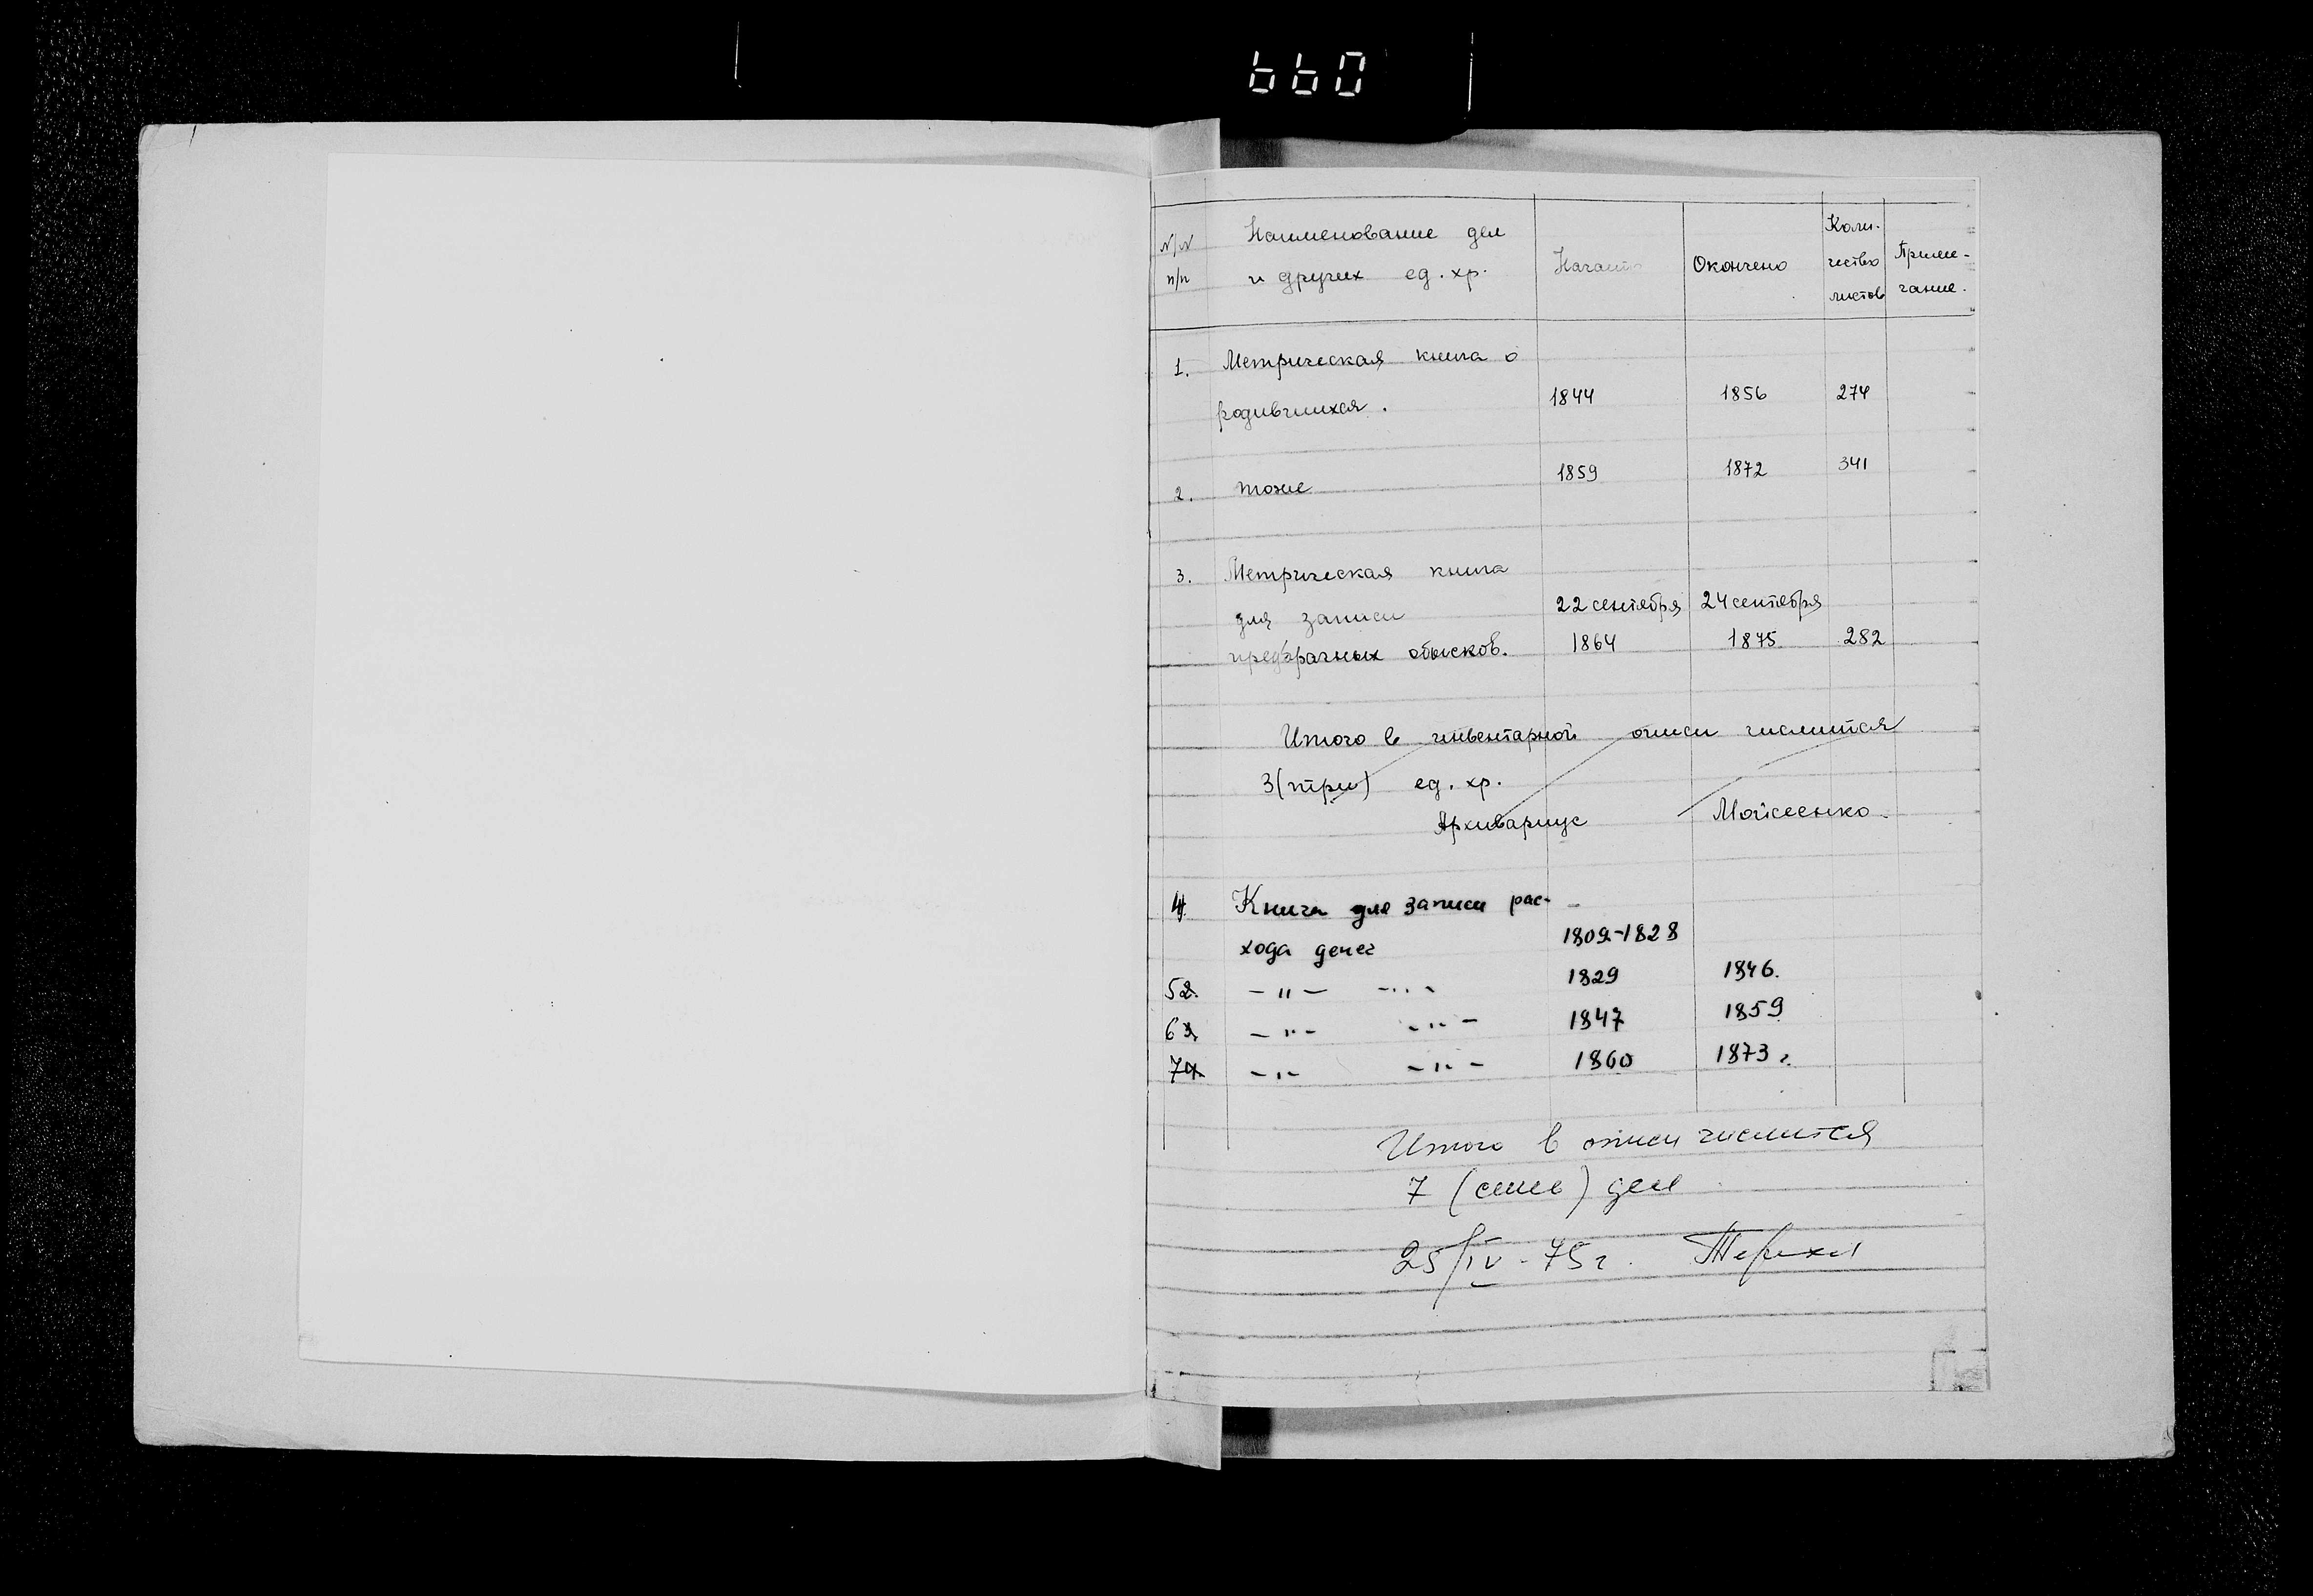 660
N/N Наименование дел Начато Окончено Коли-
п/п и других ед. хр. чество Приме-
листов чание.
1. Метрическая книга о
родившихся. 1844 1856 274
2. тоже 1859 1872 341
3. Метрическая книга
для записи 22 сентября 24 сентября
предбрачных обысков. 1864 1875 282
Итого в инвентарной описи числится
3 (три) ед. хр.
Архивариус Мойсеенко.
4. Книга для записи рас-
хода денег 1809-1828
5 -"- -"- 1829 1846.
6 -"- -"- 1847 1859
7 -"- -"- 1860 1873 г.
Итого в описи числится
7 (семь) дел
25/IV-75 г.